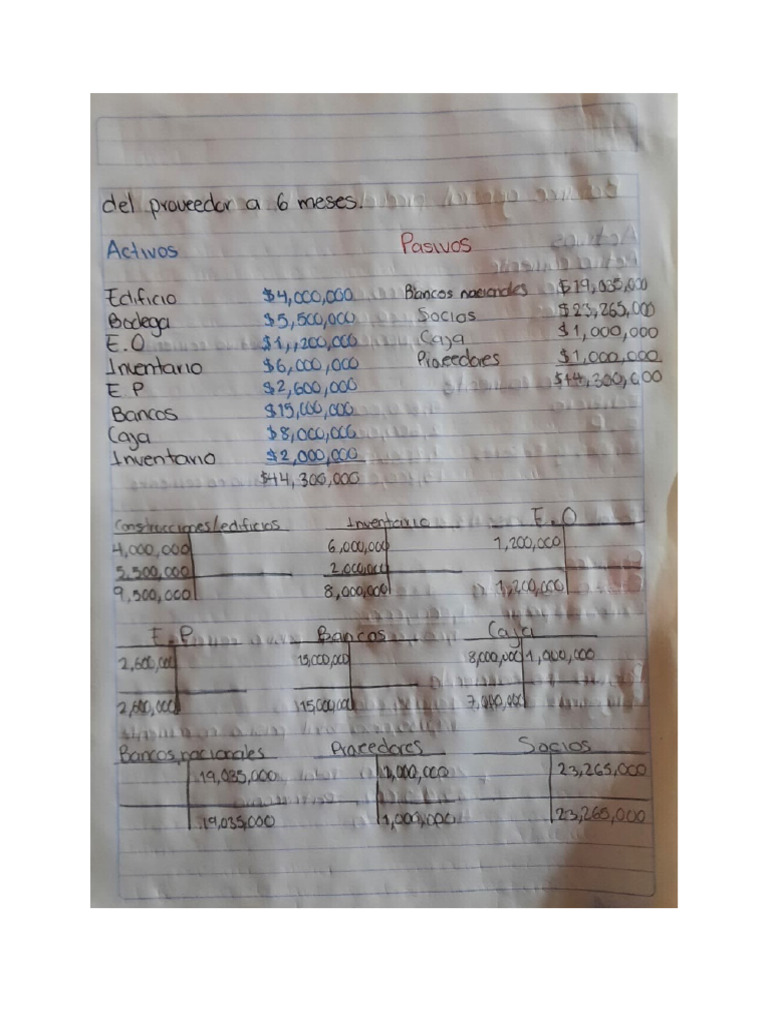 del proveedor a 6 meses.
Activos Pasivos
Edificio $4,000,000 Bancos nacionales $19,035,000
Bodega $5,500,000 Socios $23,265,000
E.O $1,200,000 Caja $1,000,000
Inventario $6,000,000 Proveedores $1,000,000
E P $2,600,000 $44,300,000
Bancos $15,000,000
Caja $8,000,000
Inventario $2,000,000
$44,300,000
Construcciones/edificios Inventario E.O
4,000,000 6,000,000 1,200,000
5,500,000 2,000,000
9,500,000 8,000,000 1,200,000
E.P Bancos Caja
2,600,000 15,000,000 8,000,000 1,000,000
2,600,000 15,000,000 7,000,000
Bancos nacionales Proveedores Socios
19,035,000 1,000,000 23,265,000
19,035,000 1,000,000 23,265,000